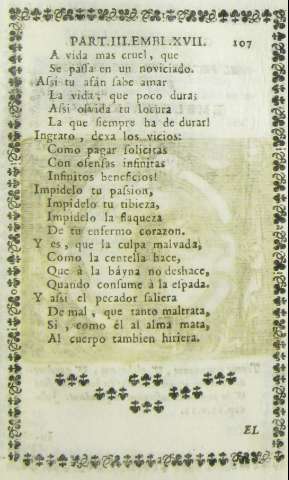 PART.III.EMBL.XVII. 107
A vida mas cruel, que
Se passa en un noviciado.
Assi tu afán sabe amar
La vida, que poco dura:
Assi olvida tu locura
La que siempre ha de durar!
Ingrato, dexa los vicios:
Como pagar solicitas
Con ofensas infinitas
Infinitos beneficios!
Impidelo tu passion,
Impidelo tu tibieza,
Impidelo la flaqueza
De tu enfermo corazon.
Y es, que la culpa malvada,
Como la centella hace,
Que à la báyna no deshace,
Quando consume à la espada.
Y assi el pecador saliera
De mal, que tanto maltrata,
Si, como él al alma mata,
Al cuerpo tambien hiriera.
EL